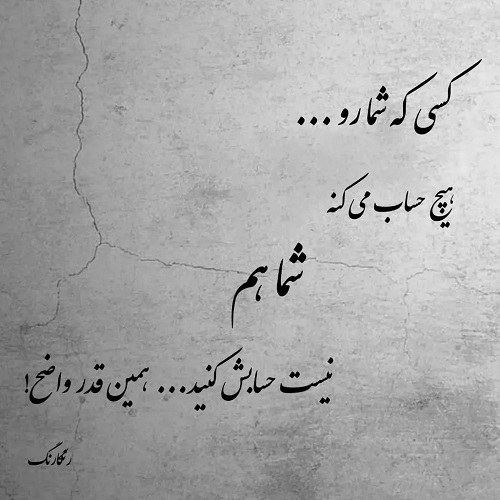 کسی که شما رو ...
هیچ حساب می کنه
شما هم
نیست حسابش کنید... همین قدر واضح!
رنگارنگ